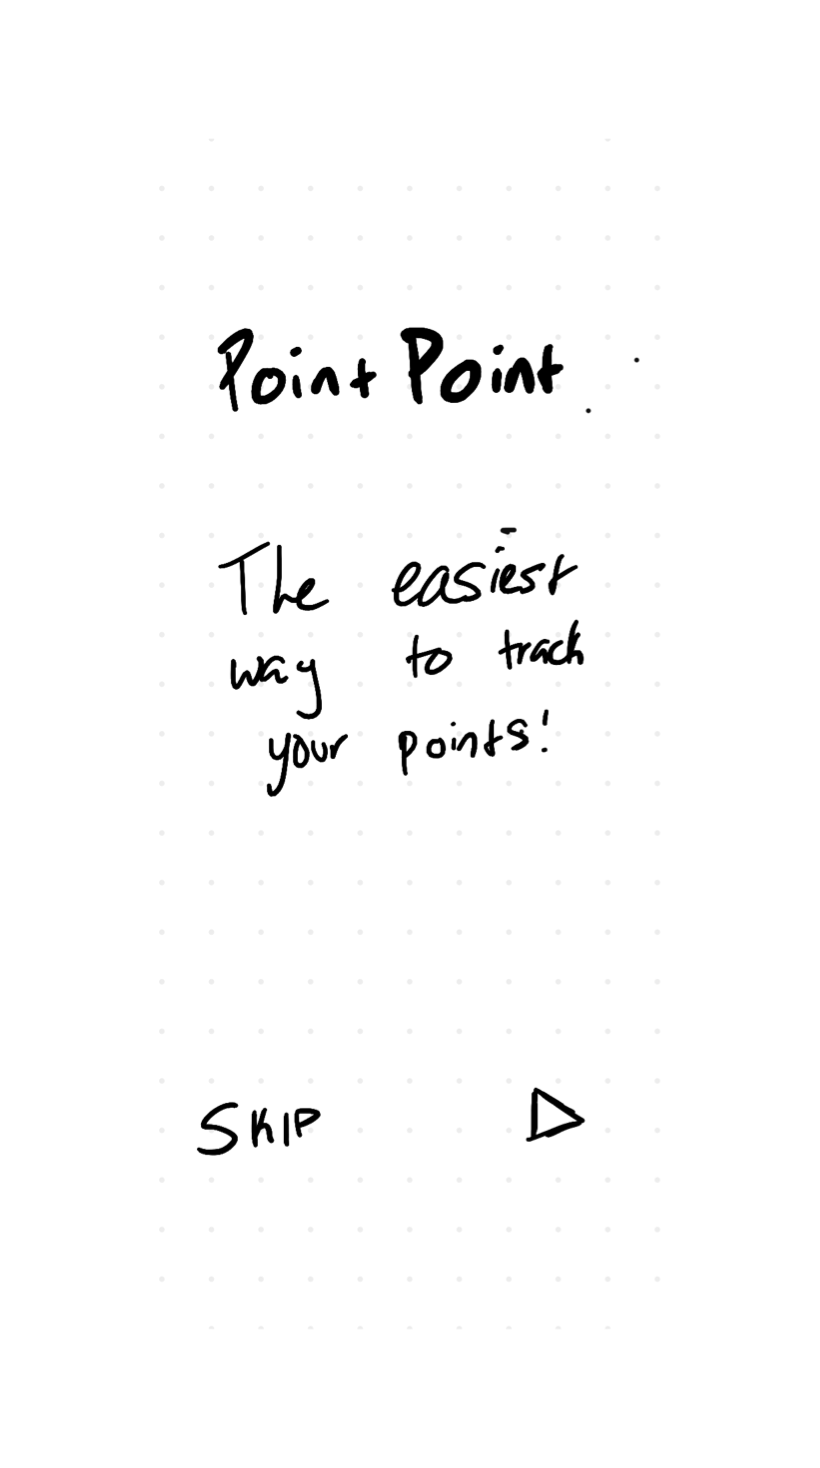 Point Point
The easiest
way to track
your points!
SKIP